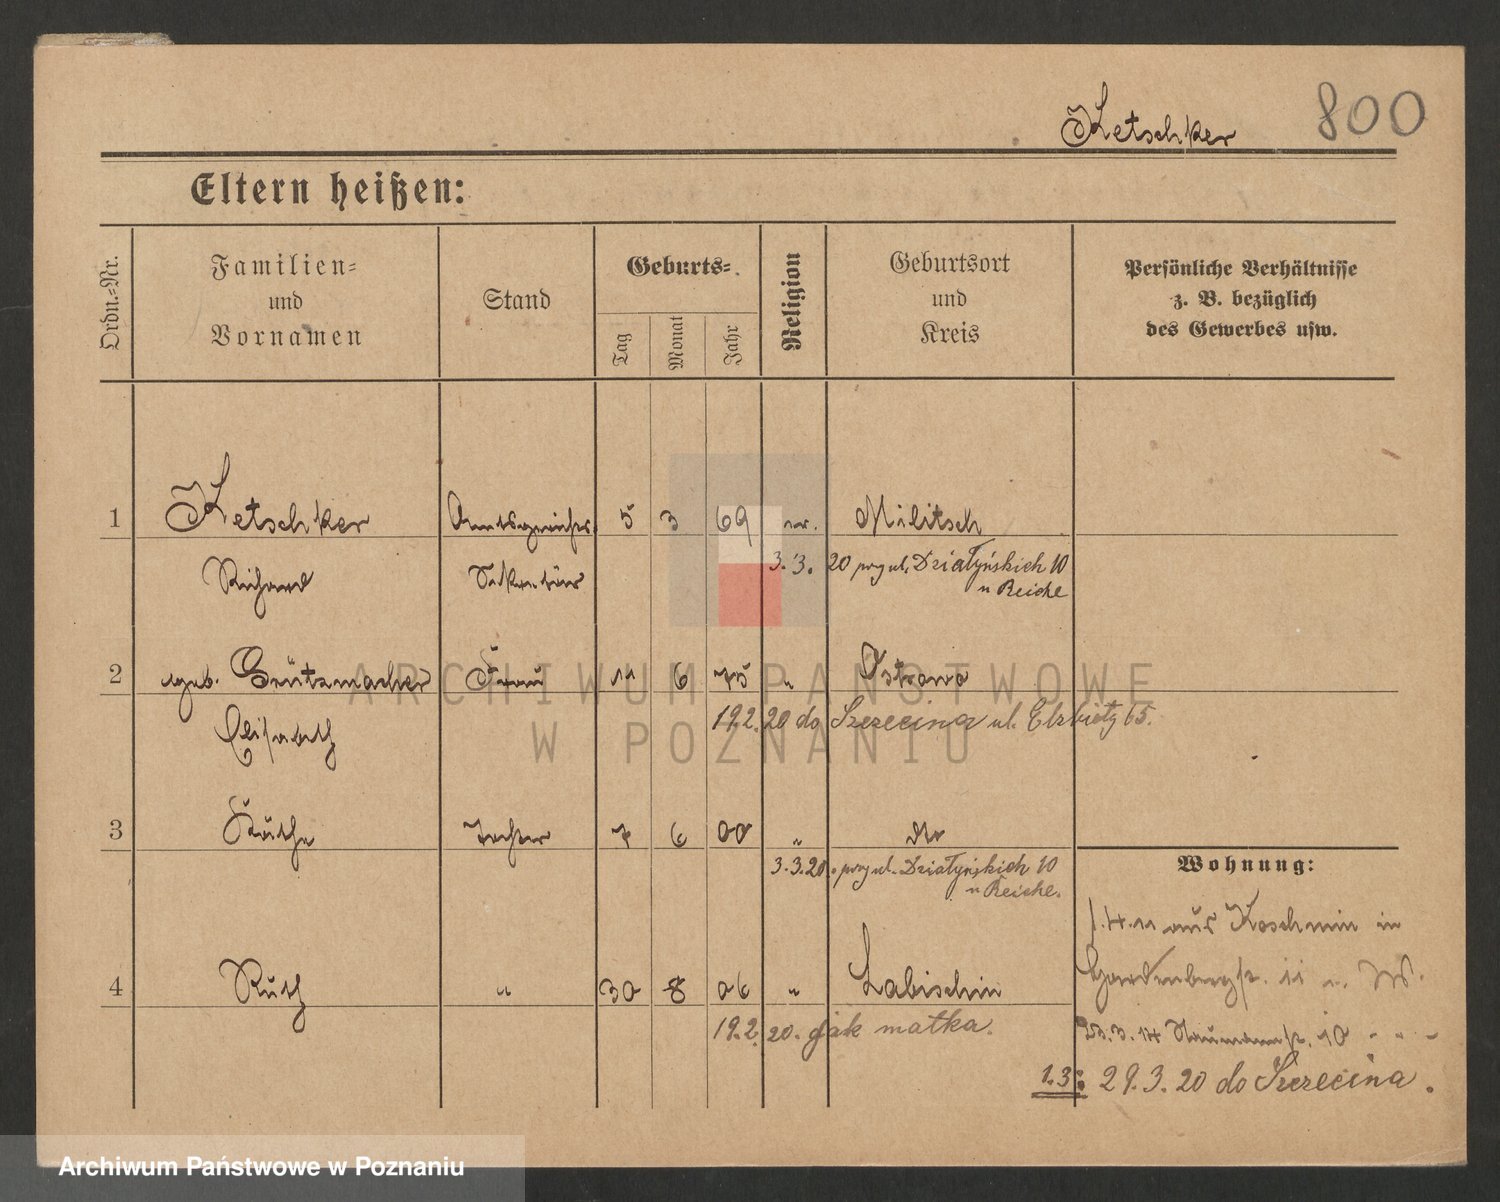 Ketschker 800
Eltern heißen:
Ordn.-Nr.
Familien-
und
Vornamen
Stand
Geburts-
Tag
Monat
Jahr
Religion
Geburtsort
und
Kreis
Persönliche Verhältnisse
z. B. bezüglich
des Gewerbes usw.
1 Ketschker Amtsgerichts- 5 3 69 ev. Militsch
Richard Sekretär 3.3.20 ul. Działyńskich 10
u Reiche
2 geb. Grützmacher Frau 11 6 75 " Ostrowo
Elisabeth 19.2.20 do Szczecina ul. Elżbiety 65.
3 Käthe Tochter 7 6 00 " dto
3.3.20. ul. Działyńskich 10
u Reiche.
4 Ruth " 30 8 06 " Labischin
19.2.20. jak matka.
Wohnung:
1.4.11 aus Koschmin in
Hardenbergstr. 11
23.3.14 Naumannstr. 10 " " "
1.3: 29.3.20 do Szczecina.
ARCHIWUM PAŃSTWOWE
W POZNANIU
Archiwum Państwowe w Poznaniu